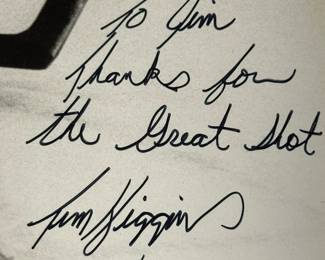 To Jim
Thanks for
the Great Shot
Tim Higgins